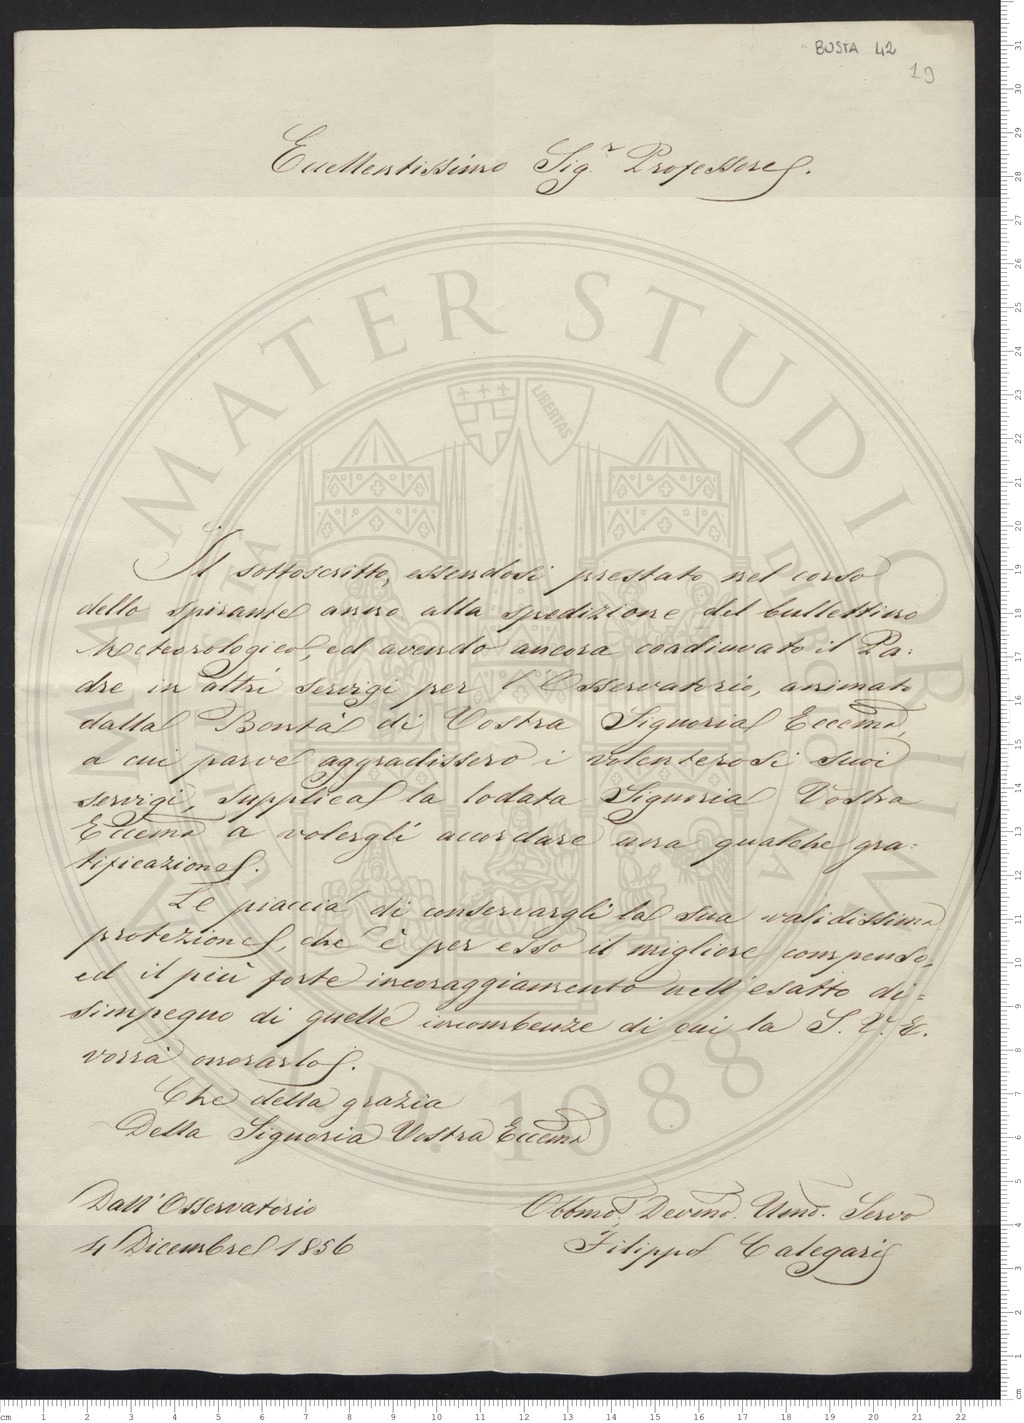 BUSTA 42
19
Eccellentissimo Sig.r Professore.
Il sottoscritto, essendosi prestato nel corso
dello spirante anno alla spedizione del bullettino
Meteorologico, ed avendo ancora coadiuvato il Pa:
dre in altri servigi per l'Osservatorio, animato
dalla Bontà di Vostra Signoria Eccema,
a cui parve aggradissero i volenterosi suoi
servigi, supplica la lodata Signoria Vostra
Eccema a volergli accordare una qualche gra:
tificazione.
Le piaccia di conservargli la sua validissima
protezione, che è per esso il migliore compenso,
ed il più forte incoraggiamento nell'esatto di=
simpegno di quelle incombenze di cui la S. V. E.
vorrà onorarlo.
Che della grazia
Della Signoria Vostra Eccema
Dall'Osservatorio
4 Dicembre 1856
Obbmo. Devmo. Umo. Servo
Filippo Calegari
ALMA MATER STUDIORUM
A.D. 1088
LIBERTAS